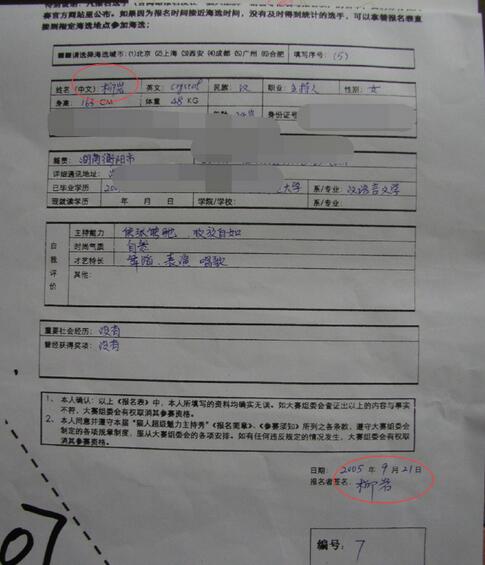 赛官方网站里公布。如果因为报名时间接近海选时间，没有及时得到统计的选手，可以拿着报名表直
接到指定海选地点参加海选；
请谨请选择海选城市：(1)北京 (2)上海 (3)西安 (4)成都 (5)广州 (6)合肥 填写序号：(5)
姓名 (中文) 柳岩 英文：crystal 民族：汉 职业：主持人 性别：女
身高：163 CM 体重 48 KG
身份证号
籍贯：湖南衡阳市
详细通讯地址：
已毕业学历 大学 系/专业：汉语言文学
现就读学历 年 月 日 学院/学校： 系/专业：
自我评价
主持能力 收放自如
时尚气质 自然
才艺特长 舞蹈、表演、唱歌
其他：
重要社会经历：没有
曾经获得奖项：没有
1、本人确认：以上《报名表》中，本人所填写的资料均确实无误。如大赛组委会查证出以上的内容与事实
不符，大赛组委会有权取消其参赛资格。
2、本人同意并遵守本届“猫人超级魅力主持秀”《报名简章》、《参赛须知》所列之各条款，遵守大赛组委会
制定的各项规章制度，服从大赛组委会的各项安排。如有任何违反规定的情况发生，大赛组委会有权取
消其参赛资格。
日期：2005 年 9 月 21 日
报名者签名：柳岩
编号：7
07